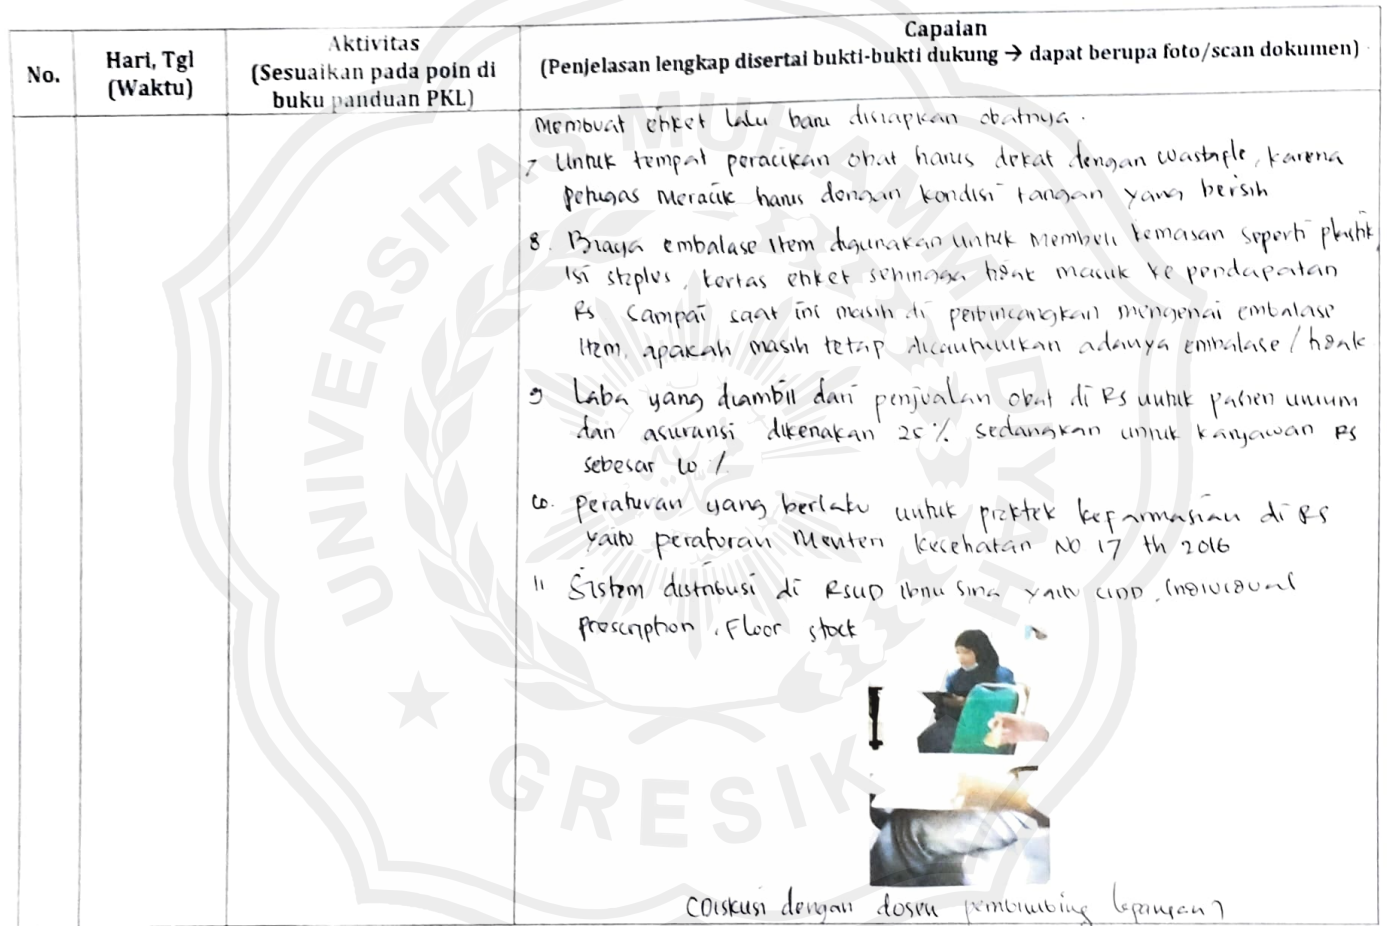 No.
Hari, Tgl
(Waktu)
Aktivitas
(Sesuaikan pada poin di
buku panduan PKL)
Capaian
(Penjelasan lengkap disertai bukti-bukti dukung → dapat berupa foto/scan dokumen)
Membuat etiket lalu baru disiapkan obatnya.
7 Untuk tempat peracikan obat harus dekat dengan wastafle, karena
petugas meracik harus dengan kondisi tangan yang bersih
8. Biaya embalase item digunakan untuk membeli kemasan seperti plastik,
isi steples, kertas etiket sehingga tidak masuk ke pendapatan
Rs sampai saat ini masih di perbincangkan mengenai embalase
item, apakah masih tetap dicantumkan adanya embalase / tidak
9 Laba yang diambil dari penjualan obat di RS untuk pasien umum
dan asuransi dikenakan 25% sedangkan untuk karyawan RS
sebesar 10 %
10. Peraturan yang berlaku untuk praktek kefarmasian di RS
yaitu peraturan Menteri Kesehatan NO 17 th 2016
11 Sistem distribusi di RSUD Ibnu Sina yaitu UDD, Individual
Prescription, Floor stock
(Diskusi dengan dosen pembimbing lapangan)
UNIVERSITAS MUHAMMADIYAH
GRESIK